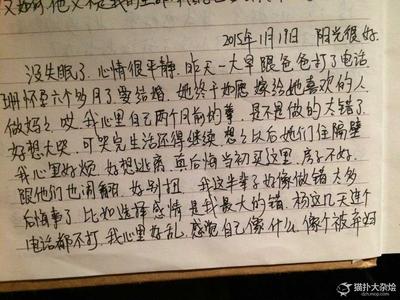 2015年1月17日 阳光很好
没失眠了.心情很平静.昨天一大早跟爸爸打了电话
怀孕六个多月了.要结婚.她终于如愿嫁给她喜欢的人
做妈了.哎.我心里自己两个月前的事.是不是做的太错了
好想大哭.可哭完生活还得继续.想以后她们住隔壁
我心里好烦.好想逃离.真后悔当初买这里.房子不好.
跟他们也闹翻.好别扭 我这半辈子好像做错太多
后悔事了.比如选择感情是我最大的错.杨这几天连个
电话都不打.我心里好乱.感觉自己像什么.像个被弃妇
猫扑大杂烩
dzh.mop.com